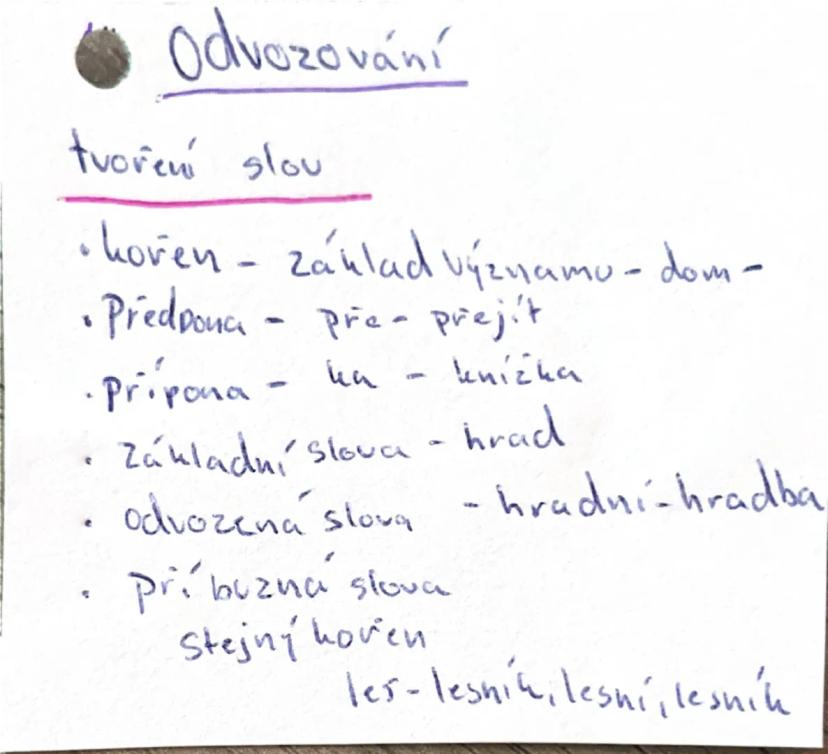 Odvozování
tvoření slov
• kořen - základ významu - dom -
• Předpona - pře - přejít
• přípona - ka - knížka
• základní slova - hrad
• odvozená slova - hradní - hradba
• příbuzná slova
stejný kořen
les - lesník, lesní, lesník